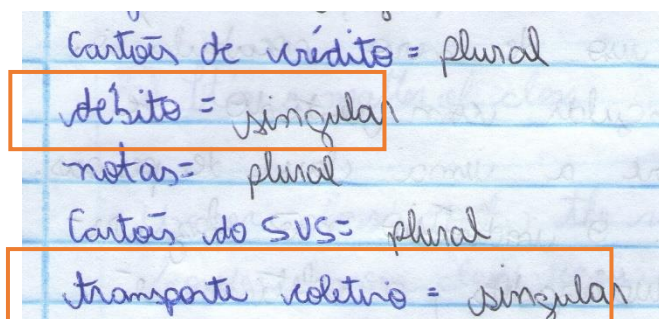 Cartões de crédito = plural
débito = singular
notas = plural
Cartões do SUS = plural
transporte coletivo = singular